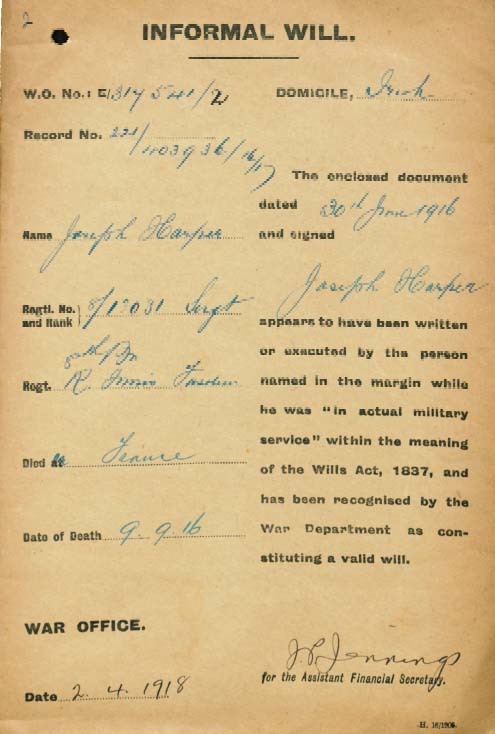 2
INFORMAL WILL.
W.O. No.: E/314541/2
Record No. 221/403936/16/17
Name Joseph Harper
Regtl. No. and Rank 8/13031 Sergt
Regt. Bn
R. Innis
Died at France
Date of Death 9.9.16
WAR OFFICE.
Date 2.4.1918
DOMICILE, Irish
The enclosed document
dated 30th June 1916
and signed
Joseph Harper
appears to have been written
or executed by the person
named in the margin while
he was "in actual military
service" within the meaning
of the Wills Act, 1837, and
has been recognised by the
War Department as con-
stituting a valid will.
Jennings
for the Assistant Financial Secretary.